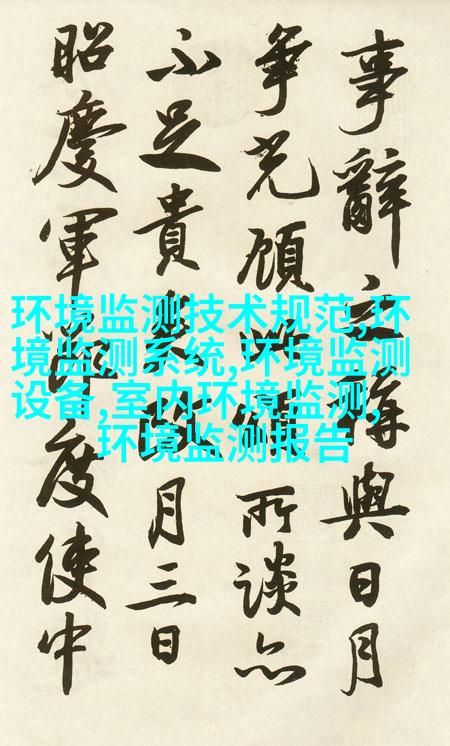 事辭之與日月
爭光顧所談亦
不足貴月三日
昭慶軍節度使中
环境监测技术规范,环
境监测系统,环境监测
设备,室内环境监测,
环境监测报告